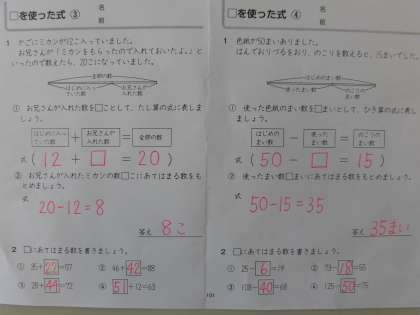 □を使った式 ③
名
前
1 かごにミカンが12こ入っていました。
お兄さんが「ミカンをもらったので入れておいたよ。」と
いったので数えたら、20こになっていました。
全部の数
はじめに入っていた数
お兄さんが入れた数
① お兄さんが入れた数を□ことして、たし算の式に表しま
しょう。
はじめに入っていた数 + お兄さんが入れた数 = 全部の数
式 ( 12 + □ = 20 )
② お兄さんが入れたミカンの数□こにあてはまる数をも
とめましょう。
式
20-12=8
答え 8こ
2 □にあてはまる数を書きましょう。
① 35+22=57 ② 46+42=88
③ 28+44=72 ④ 51+12=63
□を使った式 ④
名
前
1 色紙が50まいありました。
はんでおりづるをおり、のこりを数えると、15まいでした。
はじめのまい数
使ったまい数
のこりのまい数
① 使った色紙のまい数を□まいとして、ひき算の式に表し
ましょう。
はじめのまい数 − 使ったまい数 = のこりのまい数
式 ( 50 − □ = 15 )
② 使ったまい数□まいにあてはまる数をもとめましょう。
式
50-15=35
答え 35まい
2 □にあてはまる数を書きましょう。
① 25-6=19 ② 73-18=55
③ 108-40=68 ④ 125-50=75
101